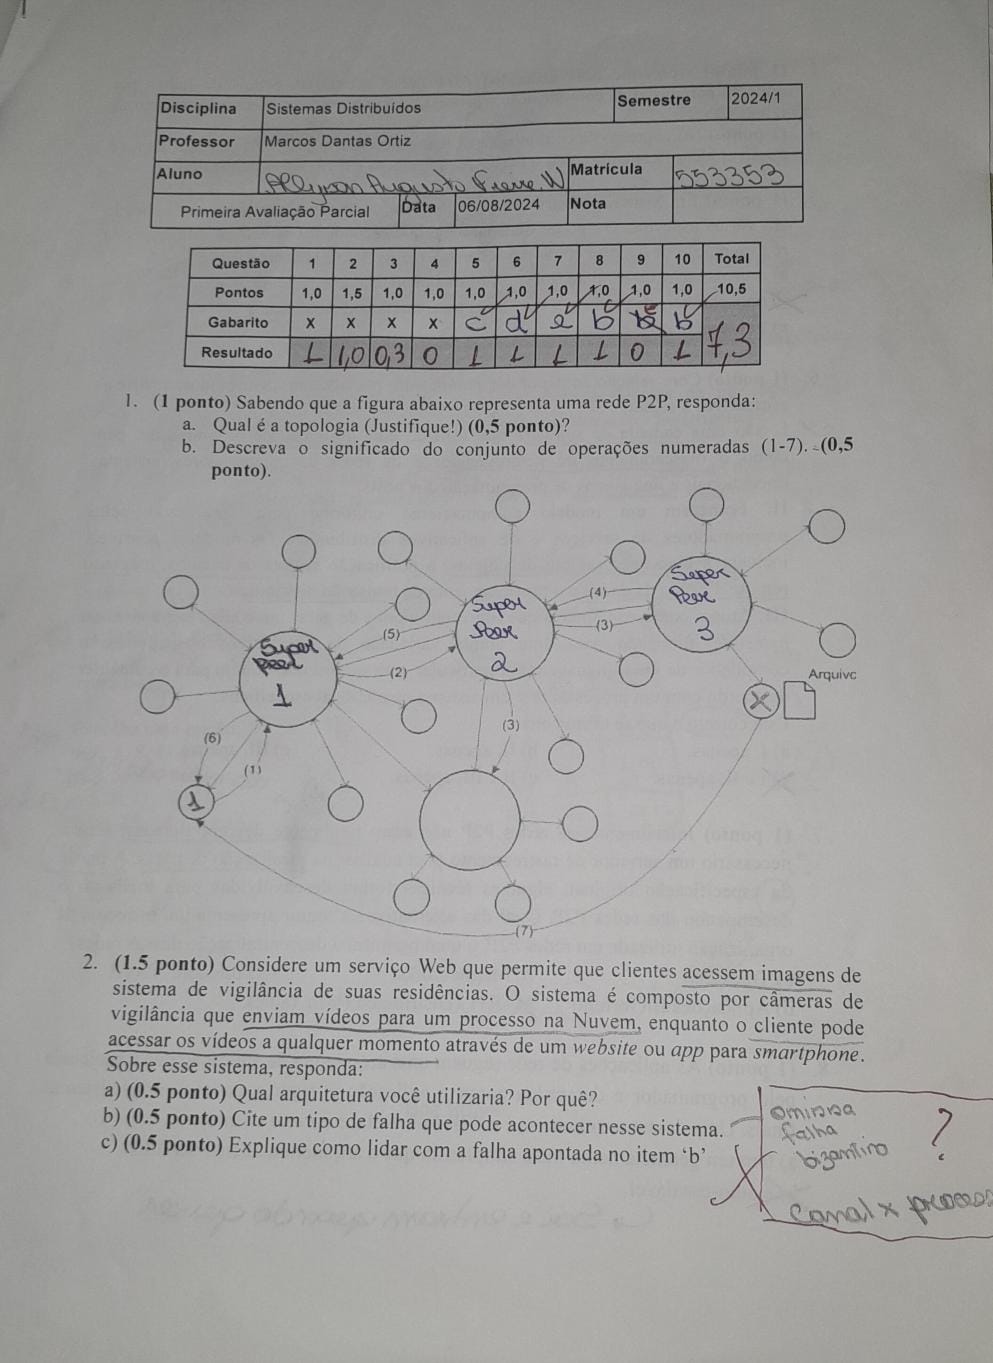 Disciplina Sistemas Distribuídos Semestre 2024/1
Professor Marcos Dantas Ortiz
Aluno Allyson Augusto Freire Matrícula 553353
Primeira Avaliação Parcial Data 06/08/2024 Nota
Questão 1 2 3 4 5 6 7 8 9 10 Total
Pontos 1,0 1,5 1,0 1,0 1,0 1,0 1,0 1,0 1,0 1,0 10,5
Gabarito x x x x c d e b b
Resultado 1 1,0 0,3 0 1 1 1 1 0 1 7,3
1. (1 ponto) Sabendo que a figura abaixo representa uma rede P2P, responda:
a. Qual é a topologia (Justifique!) (0,5 ponto)?
b. Descreva o significado do conjunto de operações numeradas (1-7). (0,5
ponto).
Super
Peer
1
Super
Peer
2
Super
Peer
3
(4)
(3)
(5)
(2)
(3)
(6)
(1)
1
X
Arquivo
(7)
2. (1.5 ponto) Considere um serviço Web que permite que clientes acessem imagens de
sistema de vigilância de suas residências. O sistema é composto por câmeras de
vigilância que enviam vídeos para um processo na Nuvem, enquanto o cliente pode
acessar os vídeos a qualquer momento através de um website ou app para smartphone.
Sobre esse sistema, responda:
a) (0.5 ponto) Qual arquitetura você utilizaria? Por quê?
b) (0.5 ponto) Cite um tipo de falha que pode acontecer nesse sistema.
c) (0.5 ponto) Explique como lidar com a falha apontada no item ‘b’
omissa
falha
bizantino
?
canal x process